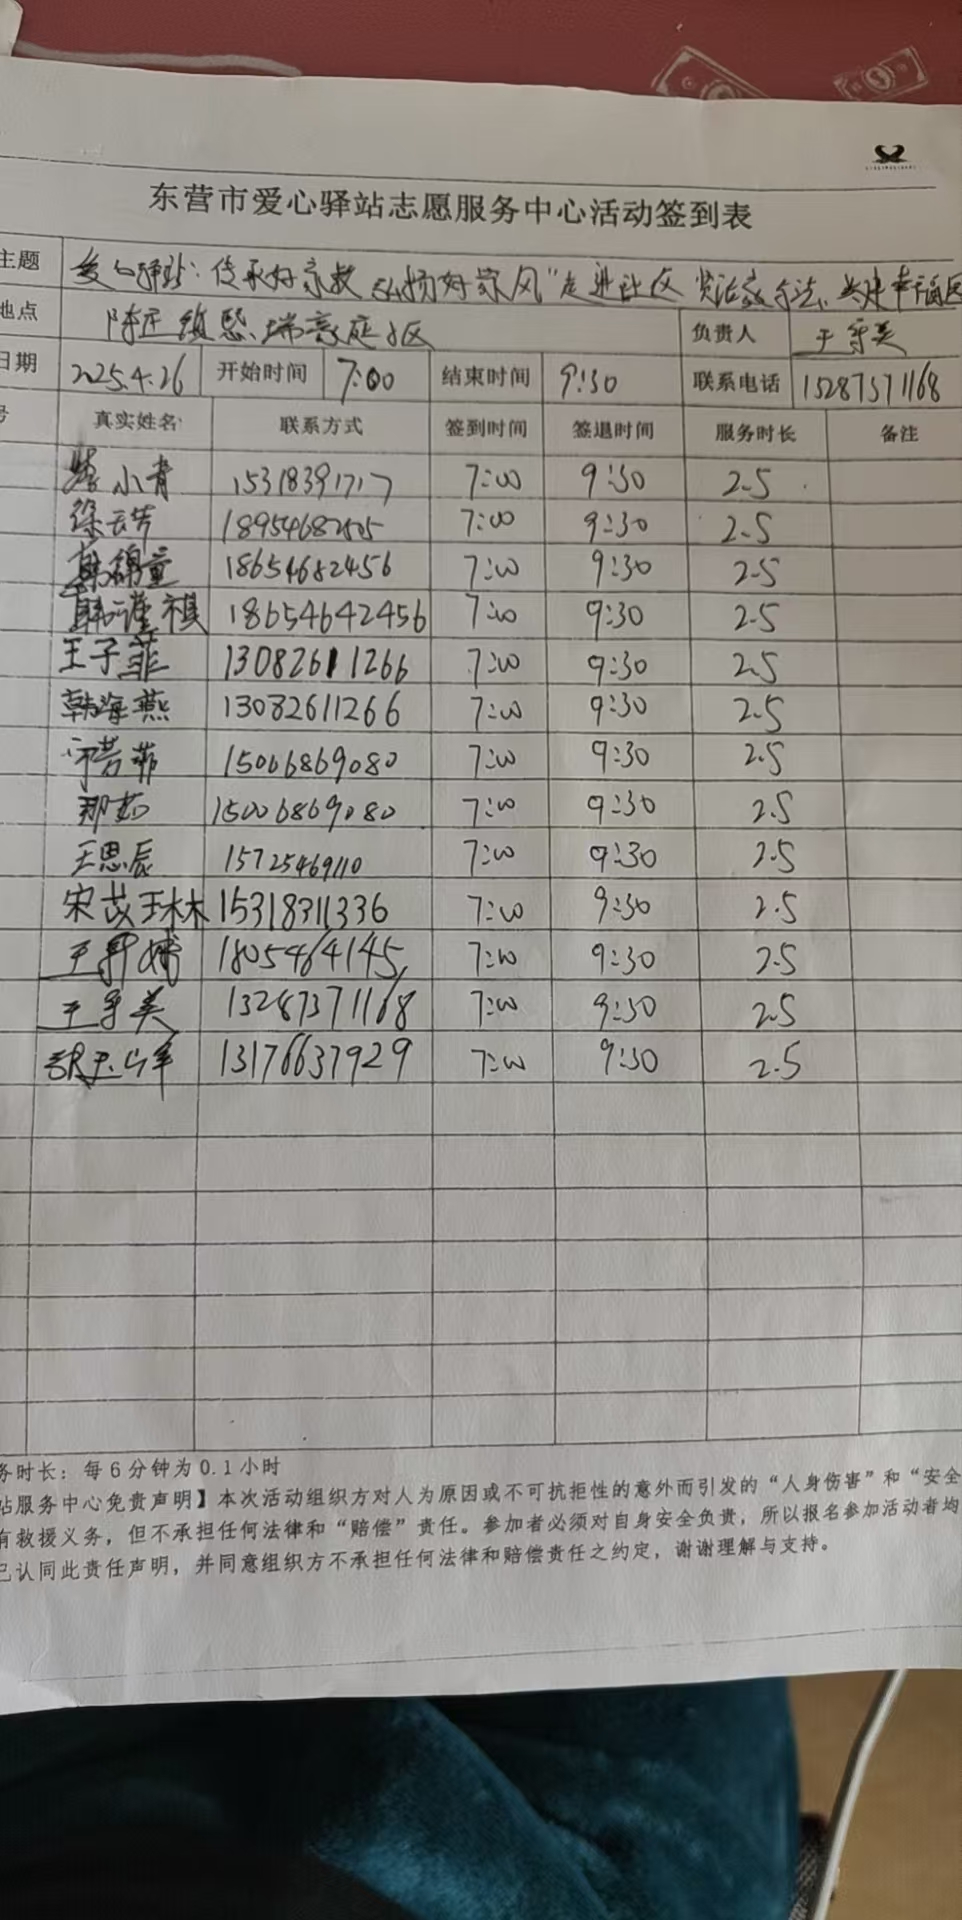 东营市爱心驿站志愿服务中心活动签到表
主题 爱心驿站:传承好家教 弘扬好家风"走进社区 共建幸福
地点 瑞豪庭小区 负责人 王学美
日期 2025.4.26 开始时间 7:00 结束时间 9:30 联系电话 15287371168
号 真实姓名 联系方式 签到时间 签退时间 服务时长 备注
小青 15318391717 7:00 9:30 2.5
徐云芳 7:00 9:30 2.5
韩锦童 18654682456 7:00 9:30 2.5
韩谨祺 18654642456 7:00 9:30 2.5
王子菲 13082611266 7:00 9:30 2.5
韩海燕 13082611266 7:00 9:30 2.5
宁芳菲 15006869080 7:00 9:30 2.5
那茹 15006869080 7:00 9:30 2.5
王思辰 15725469110 7:00 9:30 2.5
宋苡琳 15318311336 7:00 9:30 2.5
王 1805464145 7:00 9:30 2.5
王学美 13287371168 7:00 9:30 2.5
13176637929 7:00 9:30 2.5
务时长:每6分钟为0.1小时
站服务中心免责声明】本次活动组织方对人为原因或不可抗拒性的意外而引发的“人身伤害”和“安全
有救援义务,但不承担任何法律和“赔偿”责任。参加者必须对自身安全负责,所以报名参加活动者均
已认同此责任声明,并同意组织方不承担任何法律和赔偿责任之约定,谢谢理解与支持。